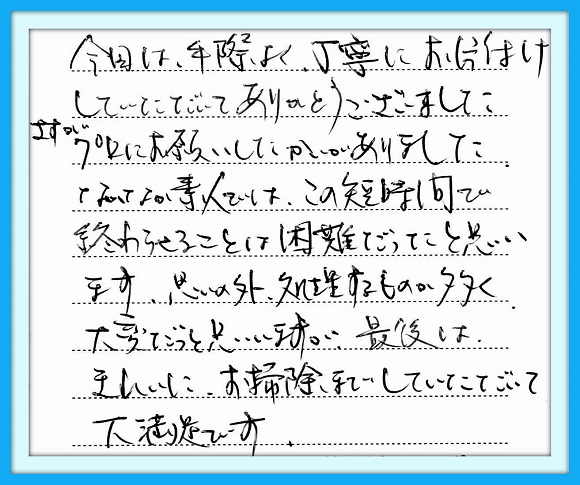 今回は、手際よく、丁寧にお片付け
していただいてありがとうございました
さすがプロにお願いしたかいがありました。
なかなか素人では、この短時間で
終わらせることは困難だったと思い
ます、思いの外、処理するものが多く
大変だったと思いいますが、最後は、
きれいに、お掃除までしていただいて
大満足です.